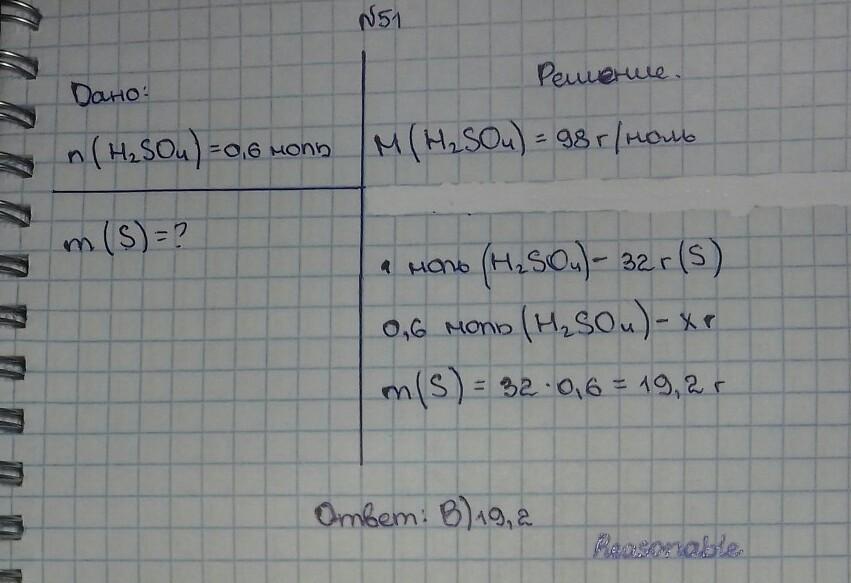 N51
Дано:
n(H₂SO₄)=0,6 моль
m(S)=?
Решение.
M(H₂SO₄)=98 г/моль
1 моль (H₂SO₄)– 32 г (S)
0,6 моль (H₂SO₄) – x г
m(S) = 32 · 0,6 = 19,2 г
Ответ: B) 19,2
Reasonable